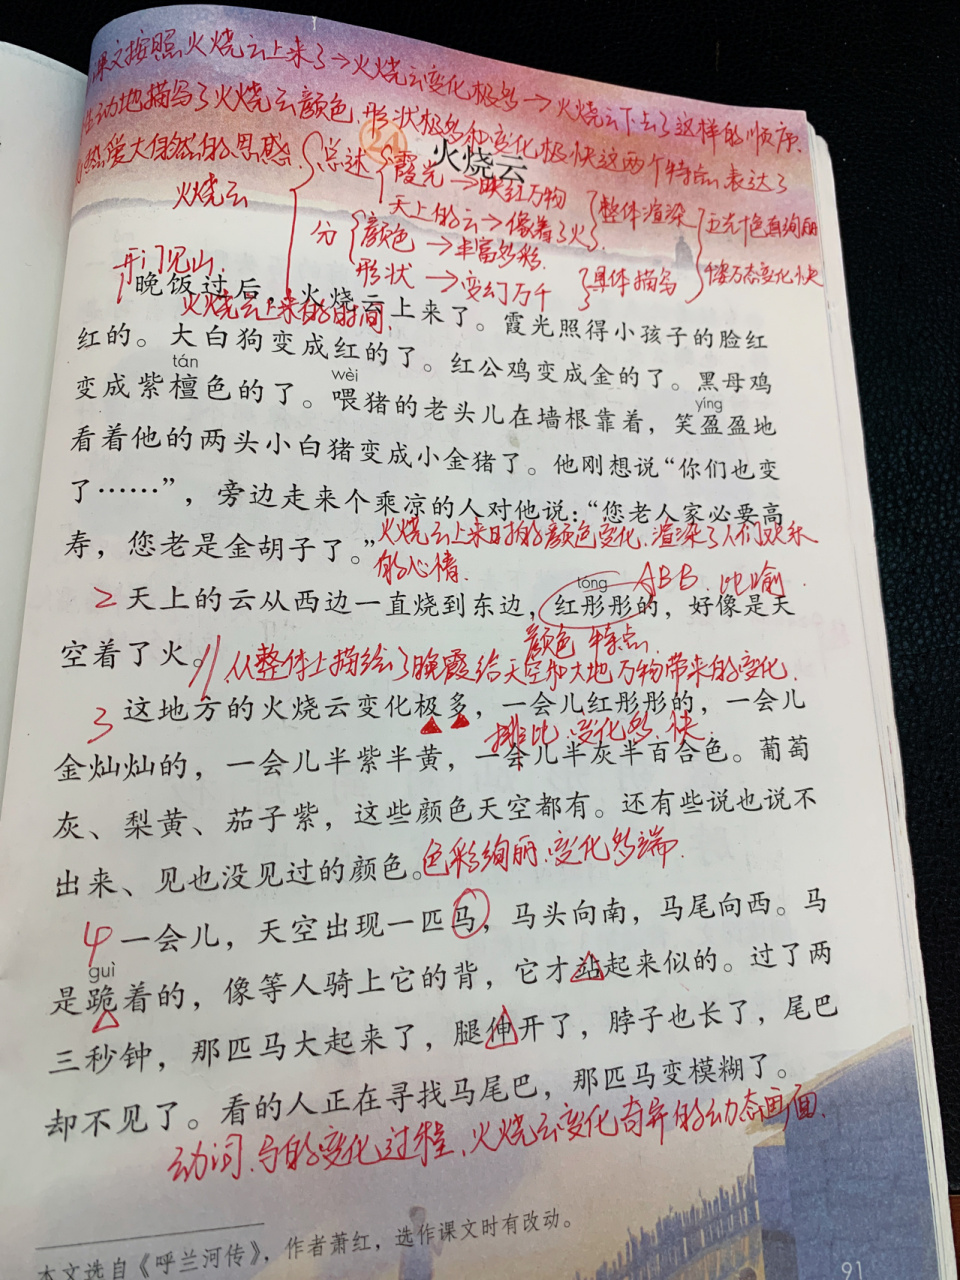 课文按照火烧云上来了→火烧云变化极多→火烧云下去了这样的顺序.
生动地描写了火烧云颜色.形状极多和变化极快这两个特点,表达了
热爱大自然的思想.
24
火烧云
火烧云
总述
霞光→映红万物
天上的云→像着了火.
整体渲染
五光十色直绚丽
分
颜色→丰富多彩.
形状→变幻万千
具体描写
千姿万态变化快
开门见山.
晚饭过后,火烧云上来了。霞光照得小孩子的脸红
火烧云上来的时间.
红的。大白狗变成红的了。红公鸡变成金的了。黑母鸡
tán
变成紫檀色的了。喂猪的老头儿在墙根靠着,笑盈盈地
wèi
yíng
看着他的两头小白猪变成小金猪了。他刚想说“你们也变
了……”,旁边走来个乘凉的人对他说:“您老人家必要高
寿,您老是金胡子了。”
火烧云上来时的颜色变化.渲染了人们欢乐
的心情.
tóng
ABB.比喻.
2 天上的云从西边一直烧到东边,红彤彤的,好像是天
空着了火。
颜色 特点.
从整体上描绘了晚霞给天空和大地万物带来的变化.
3 这地方的火烧云变化极多,一会儿红彤彤的,一会儿
排比.变化多.快
金灿灿的,一会儿半紫半黄,一会儿半灰半百合色。葡萄
灰、梨黄、茄子紫,这些颜色天空都有。还有些说也说不
出来、见也没见过的颜色。
色彩绚丽.变化多端.
4 一会儿,天空出现一匹马,马头向南,马尾向西。马
guì
是跪着的,像等人骑上它的背,它才站起来似的。过了两
三秒钟,那匹马大起来了,腿伸开了,脖子也长了,尾巴
却不见了。看的人正在寻找马尾巴,那匹马变模糊了。
动词.马的变化过程.火烧云变化奇异的动态画面.
本文选自《呼兰河传》,作者萧红,选作课文时有改动。
91